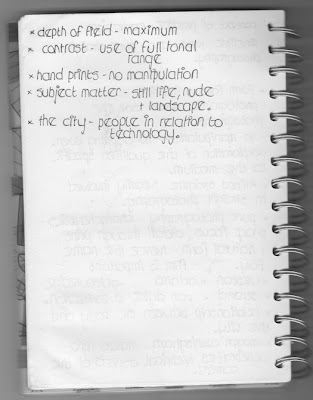 x depth of field - maximum
x contrast - use of full tonal
range
x hand prints - no manipulation
x subject matter - still life, nude
+ landscape.
x the city - people in relation to
technology.